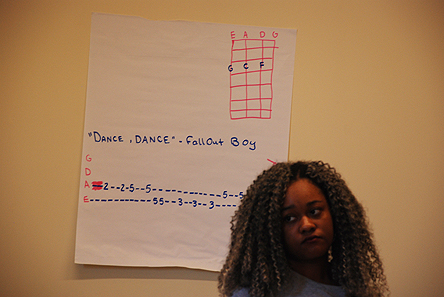 E A D G
G C F
"DANCE, DANCE" - Fallout Boy
G
D
A 2--2-5--5---------------5--5
E -------------55--3--3--3-----